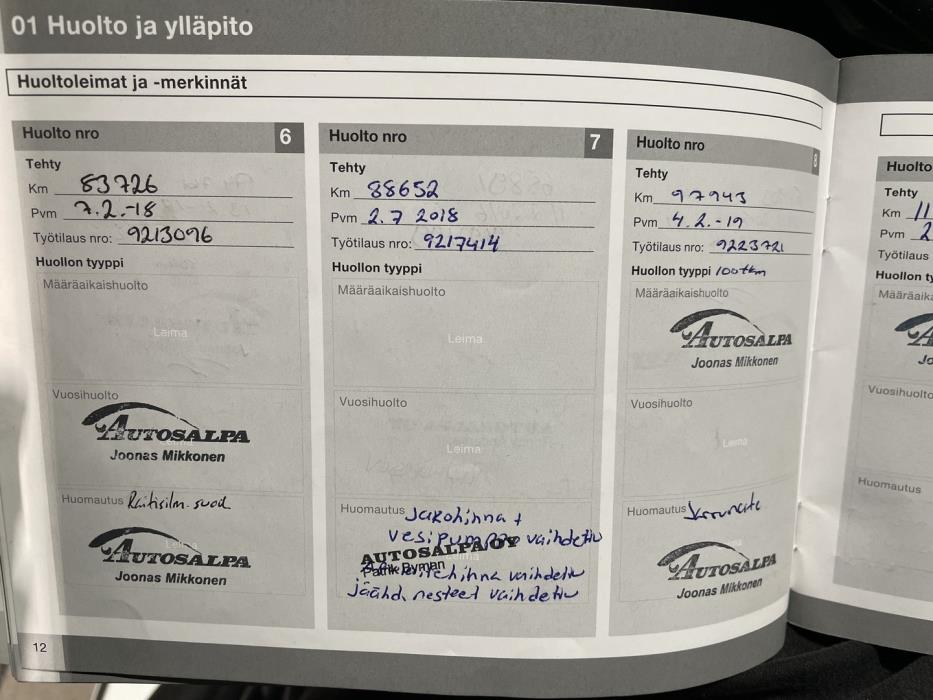 01 Huolto ja ylläpito
Huoltoleimat ja -merkinnät
Huolto nro 6
Tehty
Km 83726
Pvm 7.2.-18
Työtilaus nro: 9213096
Huollon tyyppi
Määräaikaishuolto
Leima
Vuosihuolto
AUTOSALPA
Joonas Mikkonen
Huomautus Raitisilm. suod
AUTOSALPA
Joonas Mikkonen
12
Huolto nro 7
Tehty
Km 88652
Pvm 2.7 2018
Työtilaus nro: 9217414
Huollon tyyppi
Määräaikaishuolto
Leima
Vuosihuolto
Leima
Huomautus Jakohihna +
vesipumppu vaihdettu
AUTOSALPA OY
Patrik Byman
hihna vaihdettu
jäähd. nesteet vaihdettu
Huolto nro 8
Tehty
Km 97943
Pvm 4.2.-19
Työtilaus nro: 9223721
Huollon tyyppi 100tkm
Määräaikaishuolto
AUTOSALPA
Joonas Mikkonen
Vuosihuolto
Leima
Huomautus Jarruneste
AUTOSALPA
Joonas Mikkonen
Huolto
Tehty
Km 11
Pvm 2
Työtilaus
Huollon ty
Määräaik
Jo
Vuosihuolto
Huomautus